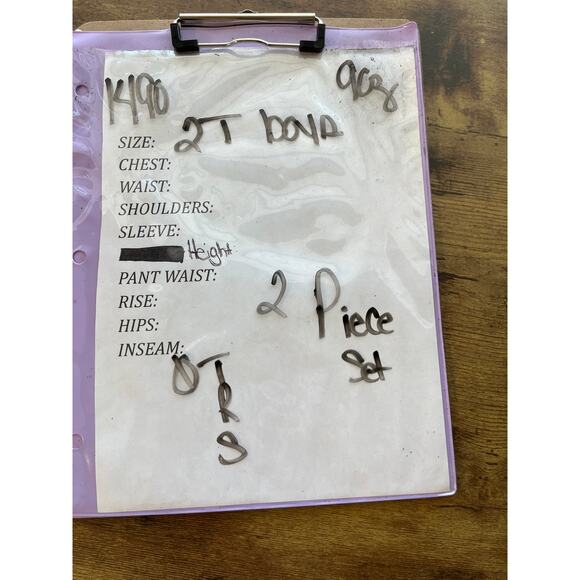 K190 9oz
SIZE: 2T boys
CHEST:
WAIST:
SHOULDERS:
SLEEVE:
Height
PANT WAIST:
RISE:
HIPS:
INSEAM:
2 Piece
Set
0T
R
S